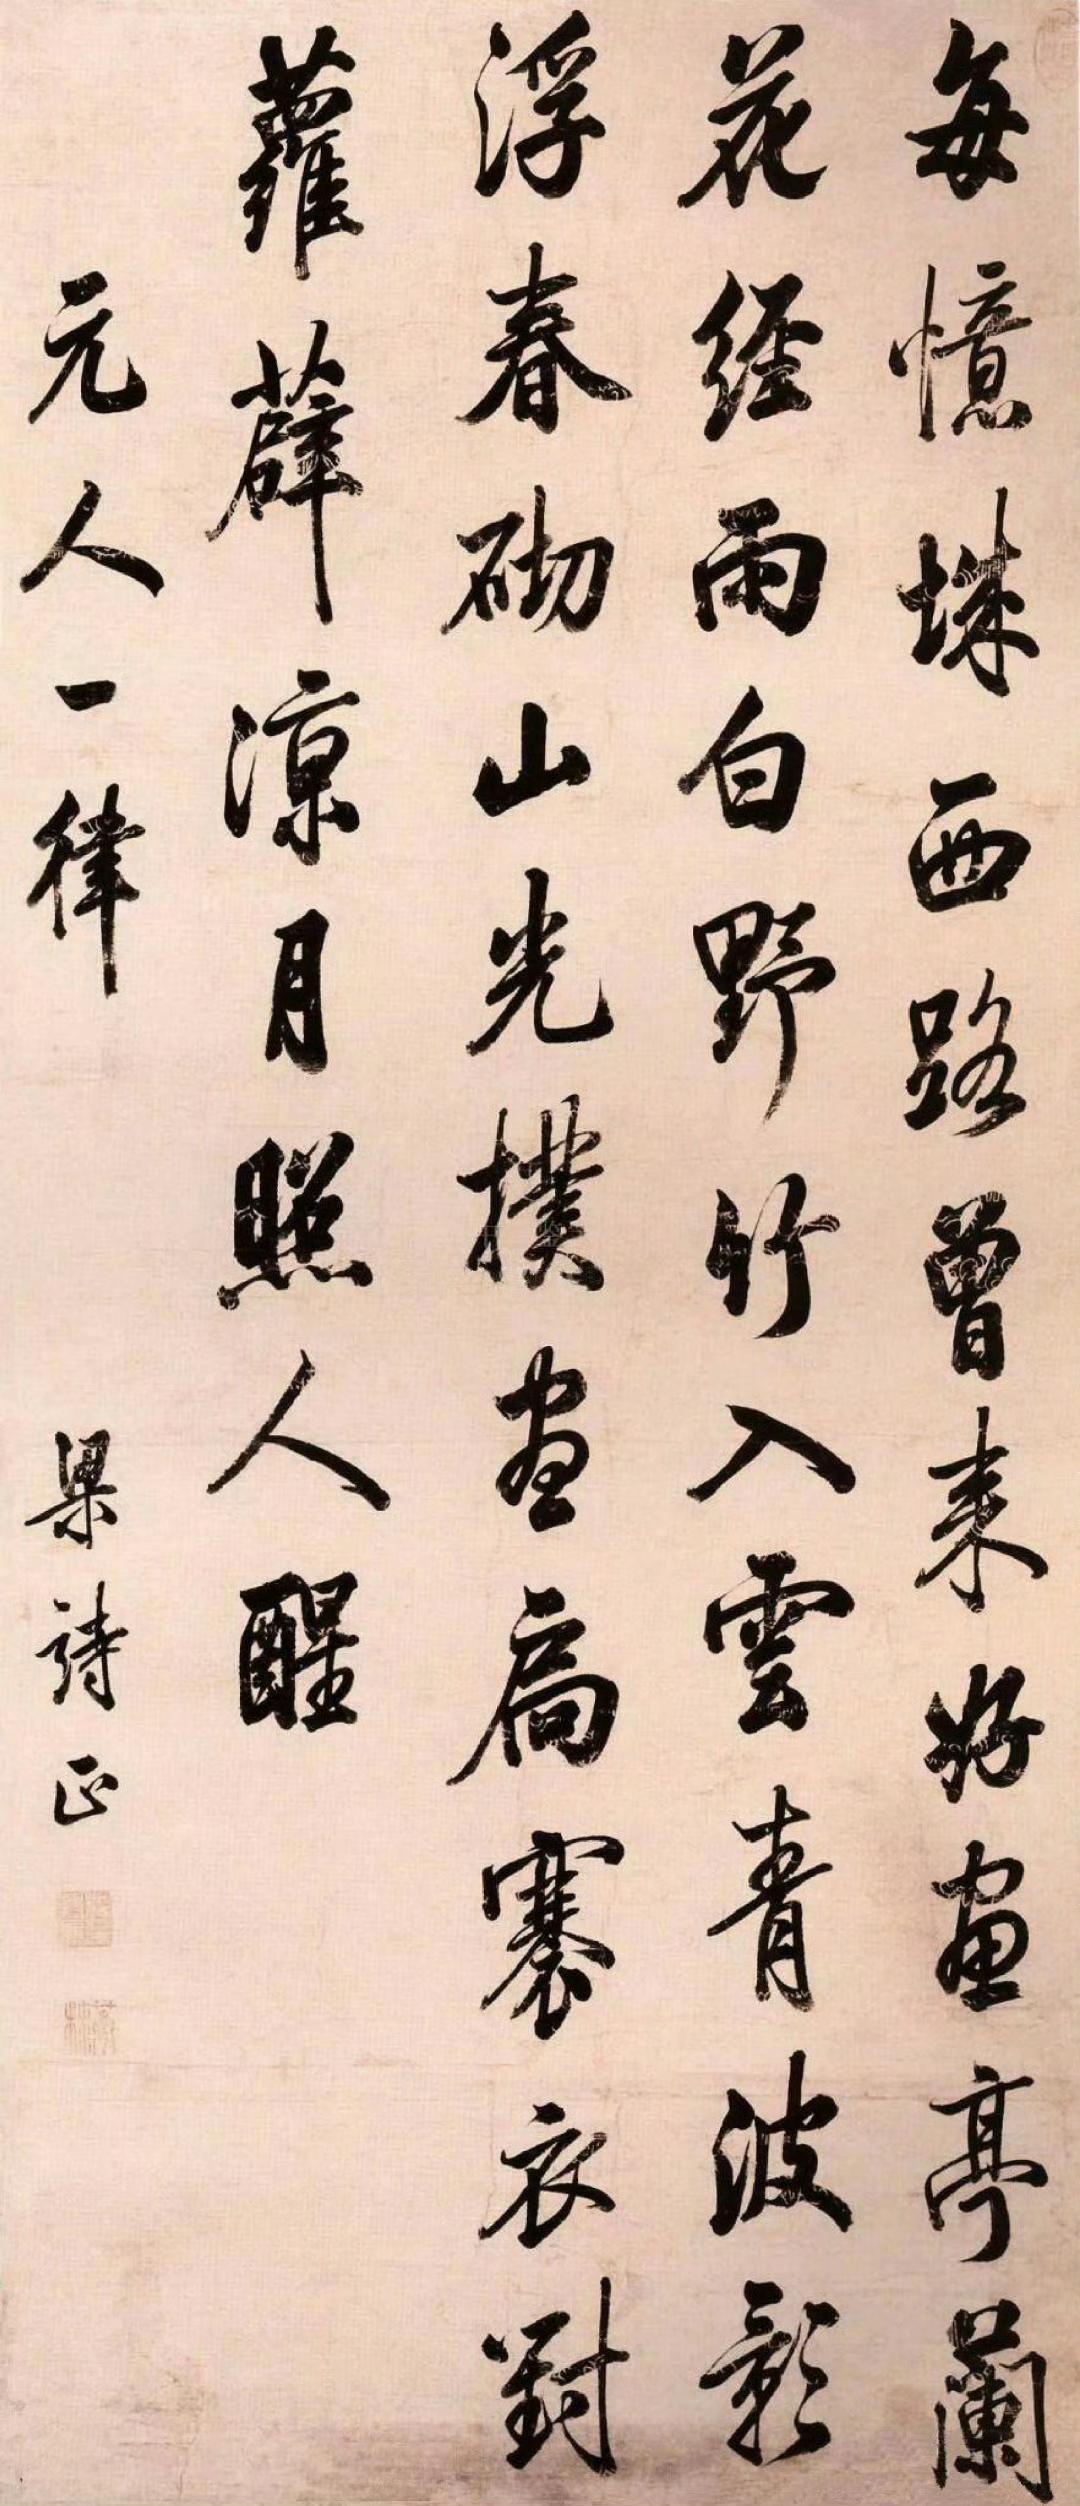 每憶城西路曾来好画亭蘭
花經雨白野竹入雲青波影
浮春砌山光撲画扃褰衣對
蘿薜凉月照人醒
元人一律
梁詩正